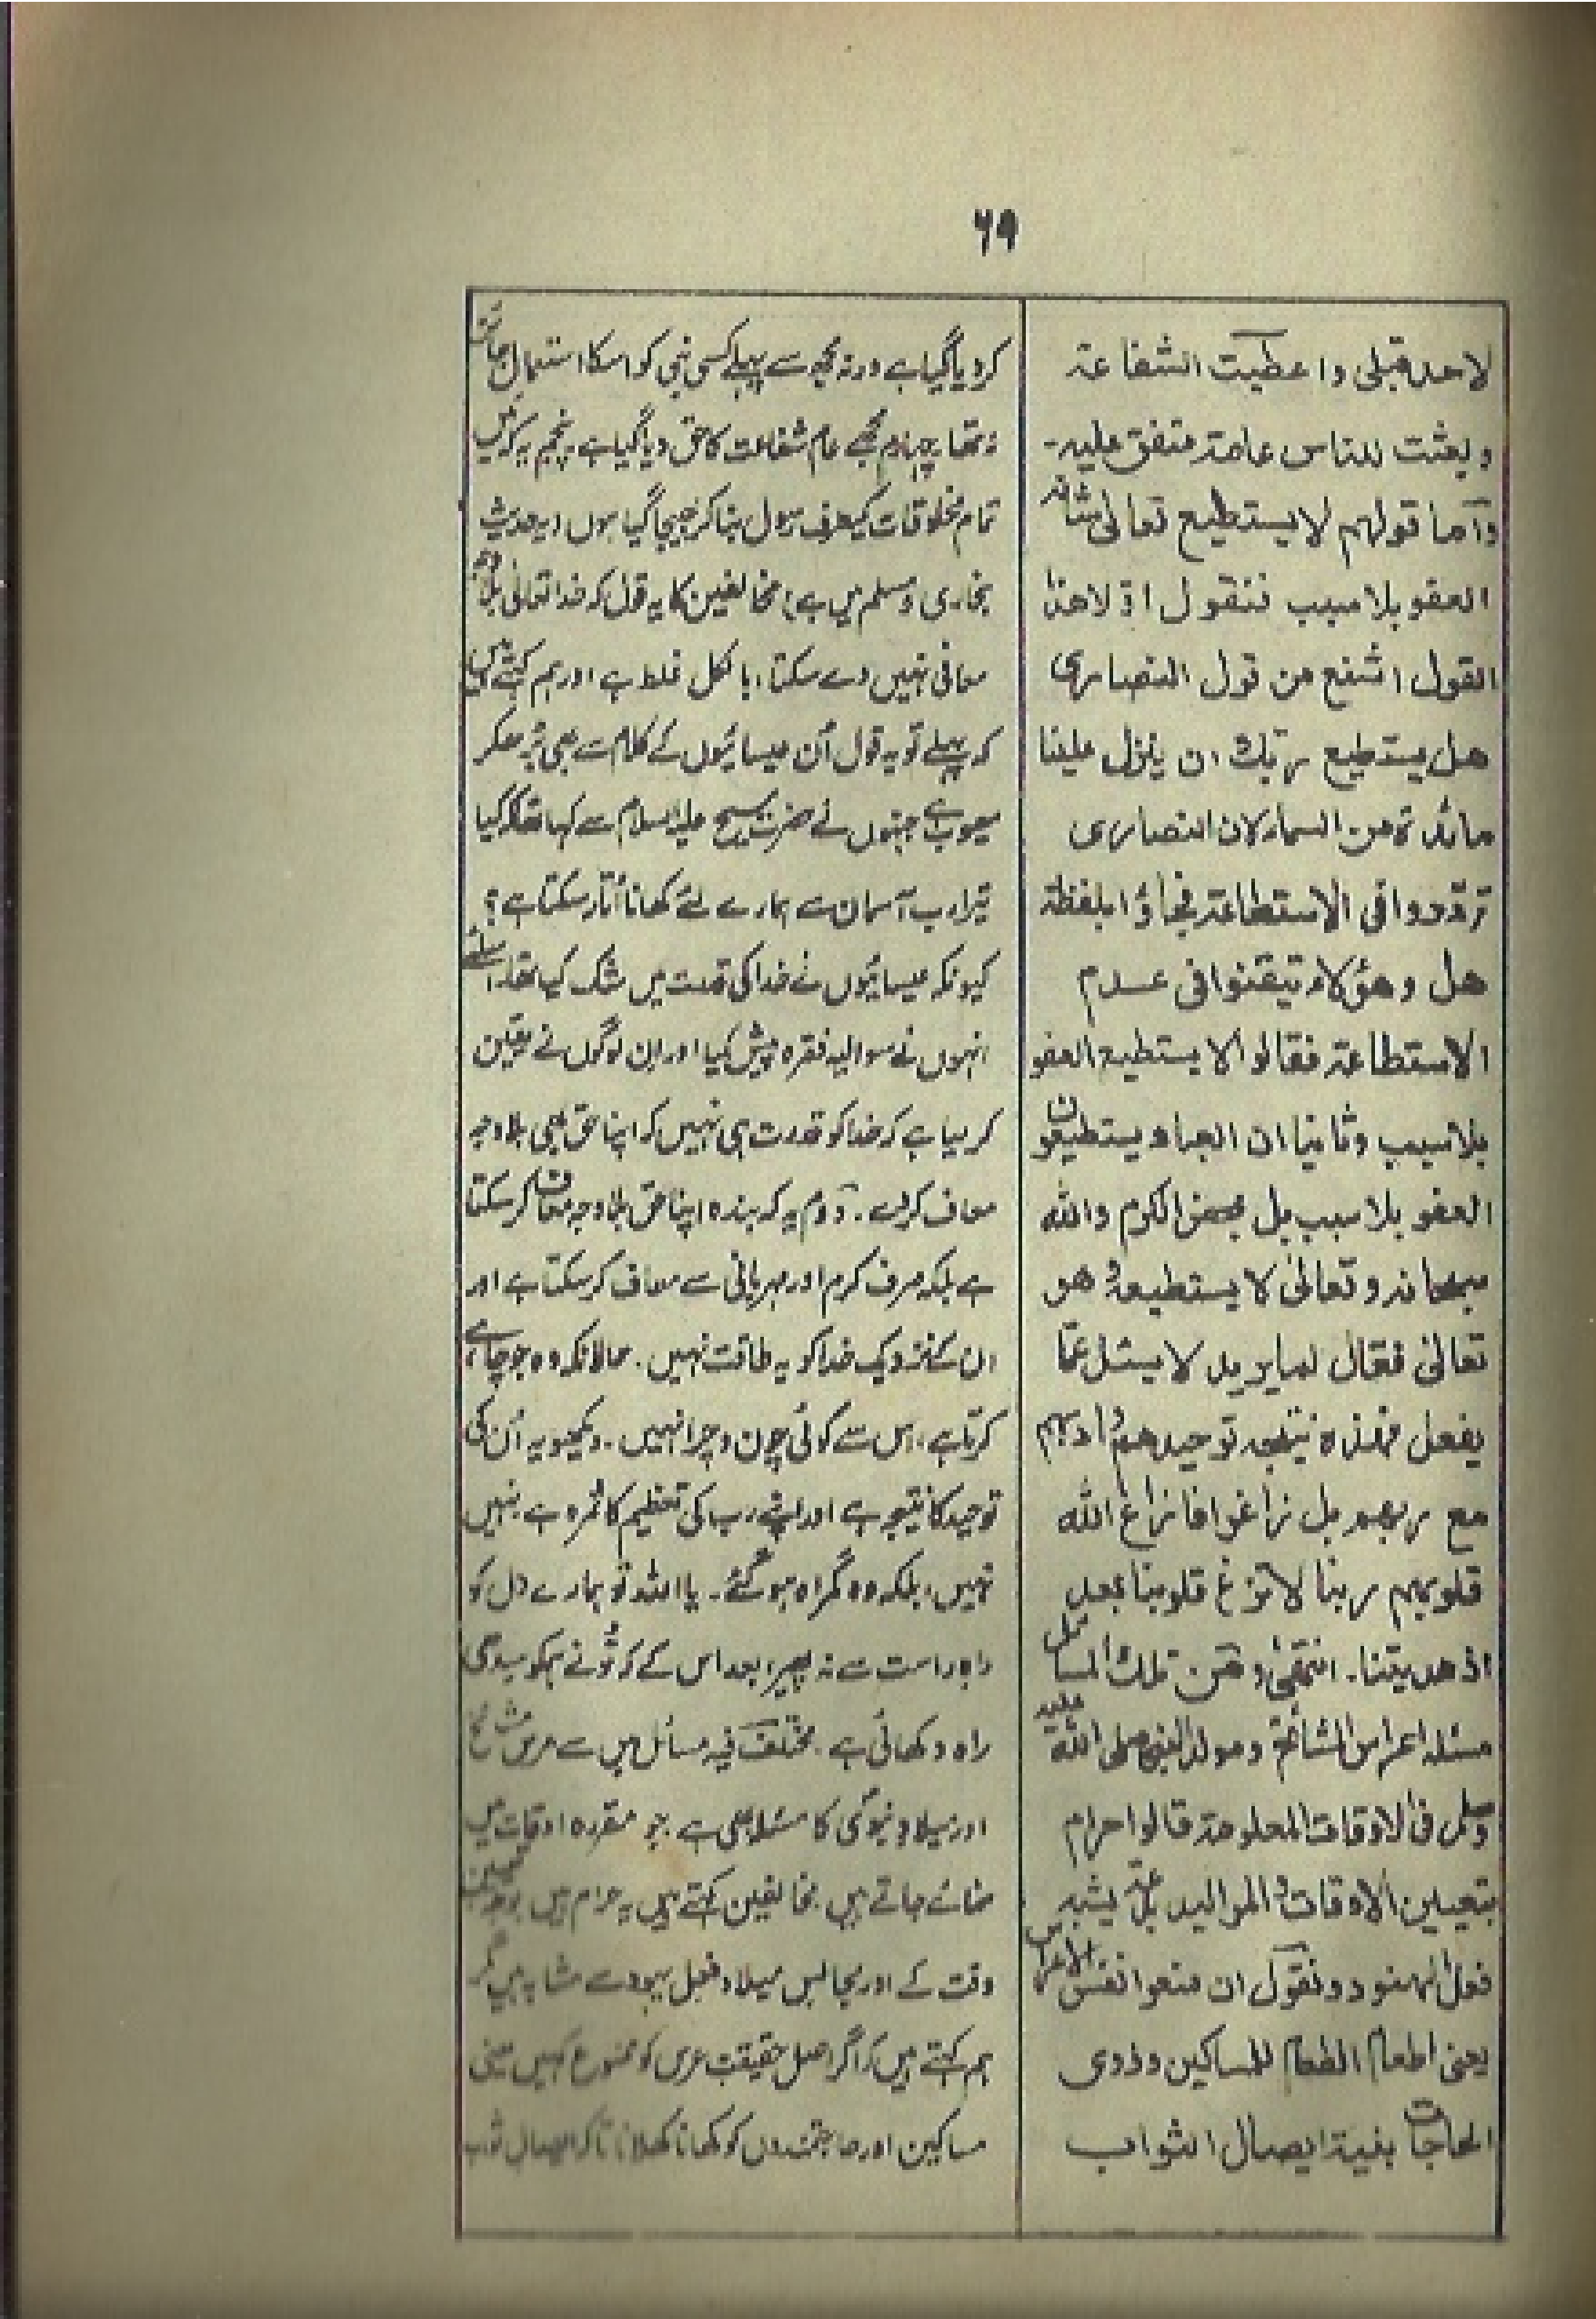 ۶۹
لاحد قبلی واعطیت الشفاعة
وبعثت للناس عامة متفق علیہ۔
وآما قولہم لا یستطیع تعالیٰ شانہ
العفو بلا سبب فنقول اوّلا ھذا
القول اشنع من قول النصاری
ھل یستطیع ربّک ان ینزل علینا
مائدة من السماء لان النصاری
تردّدوا فی الاستطاعة فجاؤا بلفظة
ھل وھؤلاء تیقنوا فی عدم
الاستطاعة فقالوا لا یستطیع العفو
بلا سبب وثانیا ان العباد یستطیعون
العفو بلا سبب بل بمحض الکرم واللہ
سبحانہ وتعالیٰ لا یستطیعہٗ ھو
تعالیٰ فعّال لما یرید لا یسئل عمّا
یفعل فھٰذہ نتیجہ توحیدھم وادبہم
مع ربھم بل زاغوا فازاغ اللہ
قلوبہم ربنا لا تزغ قلوبنا بعد
اذ ھدیتنا۔ انتھیٰ ومن تلک المسائل
مسئلہ اعراس المشائخ ومولد النبی صلی اللہ علیہ
وسلم فی الاوقات المعلومة قالوا حرام
بتعیین الاوقات والموالید بل عدّ یشبہ
فعل الہنود ونقول ان منعوا نفس الاعراس
یعنی اطعام الطعام للمساکین وذوی
الحاجات بنیة ایصال الثواب
کر دیا گیا ہے ورنہ مجھ سے پہلے کسی نبی کو اسکا استعمال جائز
نہ تھا۔ چہارم مجھے عام شفاعت کا حق دیا گیا ہے۔ پنجم یہ کہ میں
تمام مخلوقات کیطرف رسول بنا کر بھیجا گیا ہوں (یہ حدیث
بخاری و مسلم میں ہے) مخالفین کا یہ قول کہ خدا تعالیٰ بلا وجہ
معافی نہیں دے سکتا، بالکل غلط ہے اور ہم کہتے ہیں
کہ پہلے تو یہ قول اُن عیسائیوں کے کلام سے بھی بڑھکر
معیوب ہے جنہوں نے حضرت مسیح علیہ السلام سے کہا تھا کہ کیا
تیرا رب آسمان سے ہمارے لئے کھانا اُتار سکتا ہے؟
کیونکہ عیسائیوں نے خدا کی قدرت میں شک کیا تھا۔ اسلئے
انہوں نے سوالیہ فقرہ پیش کیا اور ان لوگوں نے یقین
کر لیا ہے کہ خدا کو قدرت ہی نہیں کہ اپنا حق بھی بلا وجہ
معاف کرے۔ دوم یہ کہ بندہ اپنا حق بلا وجہ معاف کر سکتا
ہے بلکہ صرف کرم اور مہربانی سے معاف کر سکتا ہے اور
ان کے نزدیک خدا کو یہ طاقت نہیں۔ حالانکہ وہ جو چاہے
کرتا ہے، اس سے کوئی چون و چرا نہیں۔ دیکھیو یہ اُن کی
توحید کا نتیجہ ہے اور اپنے رب کی تعظیم کا ثمرہ ہے۔ نہیں
نہیں، بلکہ وہ گمراہ ہو گئے۔ یا اللہ تو ہمارے دل کو
راہ راست سے نہ پھیر، بعد اس کے کہ تُو نے ہمکو سیدھی
راہ دکھائی ہے۔ مختلف فیہ مسائل میں سے عرس مشائخ
اور میلاد نبوی کا مسئلہ بھی ہے۔ جو مقررہ اوقات میں
منائے جاتے ہیں۔ مخالفین کہتے ہیں یہ حرام ہیں بوجہ تعین
وقت کے اور مجالس میلاد فعل ہنود سے مشابہ ہیں مگر
ہم کہتے ہیں کہ اگر اصل حقیقت عرس کو ممنوع کہیں یعنی
مساکین اور حاجتمندوں کو کھانا کھلانا تاکہ ایصال ثواب